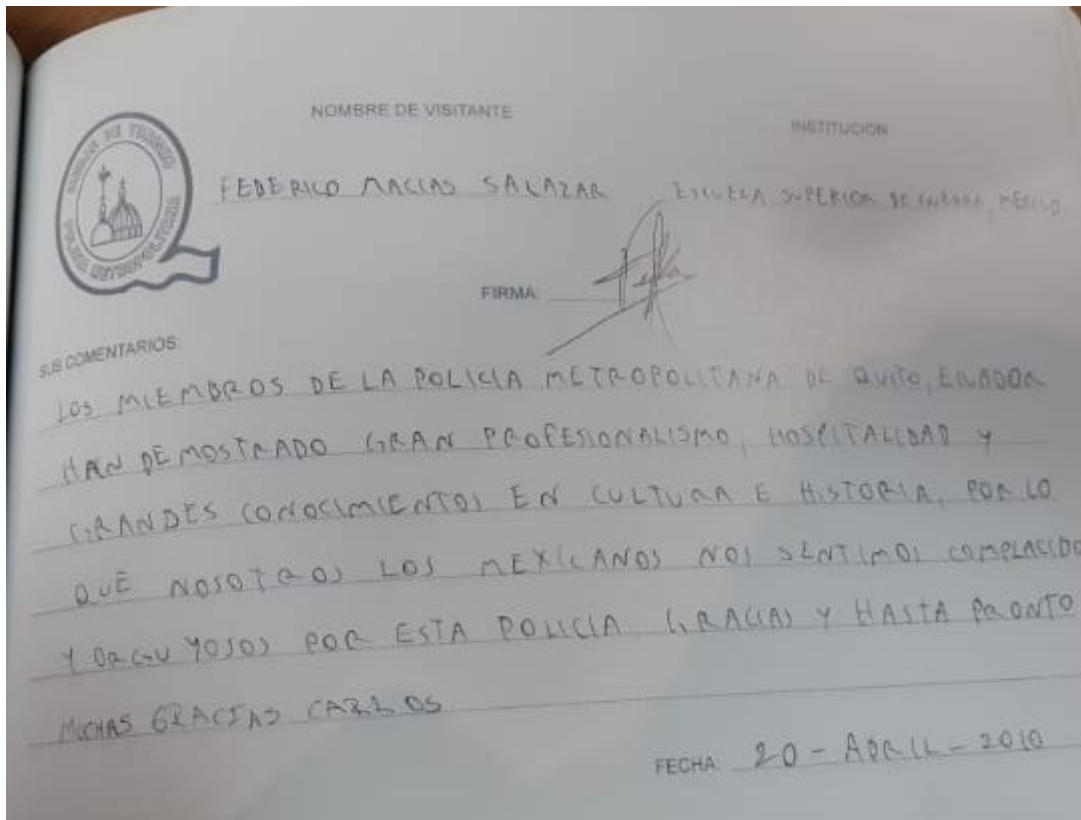 NOMBRE DE VISITANTE
INSTITUCION
FEDERICO MACIAS SALAZAR
ESCUELA SUPERIOR DE GUERRA, MÉXICO.
POLICIA METROPOLITANA
FIRMA:
SUS COMENTARIOS:
LOS MIEMBROS DE LA POLICIA METROPOLITANA DE QUITO, ECUADOR
HAN DEMOSTRADO GRAN PROFESIONALISMO, HOSPITALIDAD Y
GRANDES CONOCIMIENTOS EN CULTURA E HISTORIA, POR LO
QUE NOSOTROS LOS MEXICANOS NOS SENTIMOS COMPLACIDO
Y ORGUYOSOS POR ESTA POLICIA, GRACIAS Y HASTA PRONTO
MUCHAS GRACIAS CARLOS
FECHA: 20-ABRIL-2010